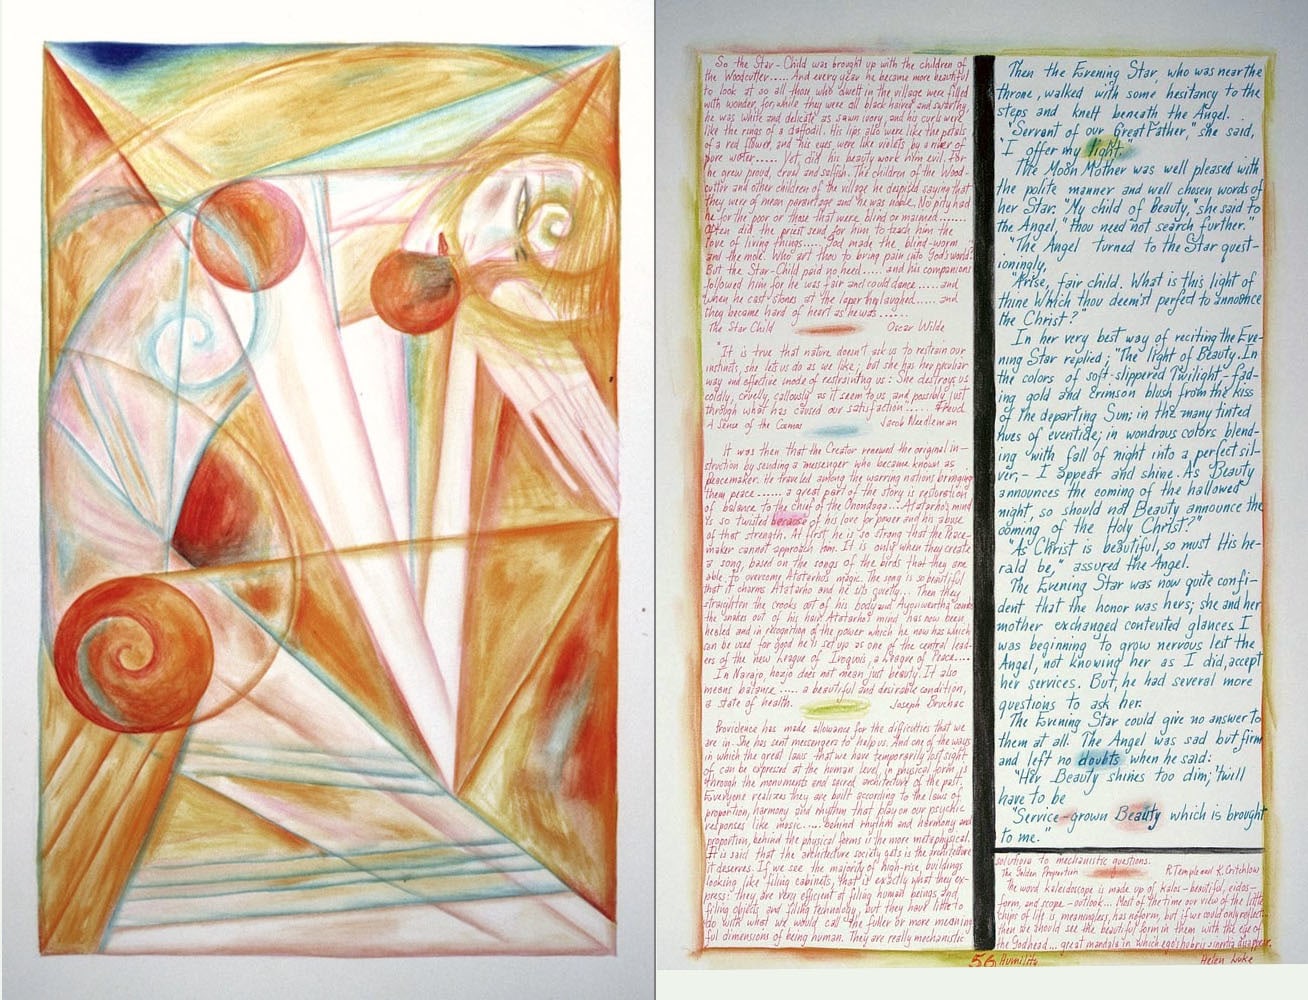 So the Star-Child was brought up with the children of
the Woodcutter..... And every year he became more beautiful
to look at so all those who dwelt in the village were filled
with wonder, for, while they were all black haired and swarthy,
he was white and delicate as sawn ivory, and his curls were
like the rings of a daffodil. His lips also were like the petals
of a red flower, and his eyes were like violets by a river of
pure water...... Yet, did his beauty work him evil. For
he grew proud, cruel and selfish. The children of the Wood-
cutter and other children of the village he despised saying that
they were of mean parantage and he was noble. No pity had
he for the poor or those that were blind or maimed.......
Often did the priest send for him to teach him the
love of living things..... God made the blind-worm
and the mole. Who art thou to bring pain into God's world?
But the Star-Child paid no heed..... and his companions
followed him for he was fair and could dance..... and
when he cast stones at the leper they laughed...... and
they became hard of heart as he was......
The Star Child Oscar Wilde
"It is true that nature doesn't ask us to restrain our
instincts, she lets us do as we like; but she has her peculiar
way and effective mode of restraining us: She destroys us
coldly, cruelly, callously as it seem to us, and possibly just
through what has caused our satisfaction..... Freud
A Sense of the Cosmos Jacob Needleman
It was then that the Creator renewed the original in-
struction by sending a messenger who became known as
Peacemaker. He traveled among the warring nations bringing
them peace...... a great part of the story is restoration
of balance to the chief of the Onondaga.... Atatarho's mind
is so twisted because of his love for power and his abuse
of that strength. At first he is so strong that the Peace-
maker cannot approach him. It is only when they create
a song, based on the songs of the birds that they are
able to overcome Atatarho's magic. The song is so beautiful
that it charms Atatarho and he sits quietly... Then they
straighten the crooks out of his body and Ayonwentha combs
the snakes out of his hair. Atatarho' mind has now been
healed and in recognition of the power which he now has which
can be used for good he'll set up as one of the central lead-
ers of the new League of Iroquois, a League of Peace....
In Navajo, hozjo does not mean just beauty. It also
means balance ..... a beautiful and desirable condition,
a state of health. Joseph Bruchac
Providence has made allowance for the difficulties that we
are in. She has sent messengers to help us. And one of the ways
in which the great laws that we have temporarily lost sight
of can be expressed at the human level, in physical form is
through the monuments and sacred architecture of the past.
Everyone realizes they are built according to the laws of
proportion, harmony and rhythm that play on our psychic
responses like music..... Behind rhythm and harmony and
proportion, behind the physical forms is the more metaphysical.
It is said that the architecture society gets is the architecture
it deserves. If we see the majority of high-rise, buildings
looking like filing cabinets, that is exactly what they ex-
press: they are very efficient at filing human beings and
filing objects and filing technology, but they have little to
do with what we would call the fuller or more meaning
ful dimensions of being human. They are really mechanistic
Then the Evening Star, who was near the
throne, walked with some hesitancy to the
steps and knelt beneath the Angel.
"Servant of our Great Father," she said,
"I offer my light."
The Moon Mother was well pleased with
the polite manner and well chosen words of
her Star. "My child of Beauty," she said to
the Angel, "thou need not search further."
"The Angel turned to the Star quest-
ioningly,
"Arise, fair child. What is this light of
thine Which thou deem'st perfect to announce
the Christ?"
In her very best way of reciting the Eve-
ning Star replied; "The light of Beauty. In
the colors of soft-slippered Twilight-fad-
ing gold and crimson blush from the kiss
of the departing Sun; in the many tinted
hues of eventide; in wondrous colors blend-
ing with fall of night into a perfect sil-
ver,- I appear and shine. As Beauty
announces the coming of the hallowed
night, so should not Beauty announce the
coming of the Holy Christ?"
"As Christ is beautiful, so must His he-
rald be," assured the Angel.
The Evening Star was now quite confi-
dent that the honor was hers; she and her
mother exchanged contented glances. I
was beginning to grow nervous lest the
Angel, not knowing her as I did, accept
her services. But, he had several more
questions to ask her.
The Evening Star could give no answer to
them at all. The Angel was sad but firm
and left no doubts when he said:
"Her Beauty shines too dim; 'twill
have to be
"Service-grown Beauty which is brought
to me."
solutions to mechanistic questions.
The Golden Proportion R. Temple and K. Critchlow
The word kaleidoscope is made up of kalos-beautiful, eidos-
form, and scope-outlook... Most of the time our view of the little
chips of life is meaningless, has no form, but if we could only reflect...
then we should see the beautiful form in them with the eye of
the Godhead... great mandala in which ego's hubris inertia disappear.
56 Humility Helen Luke